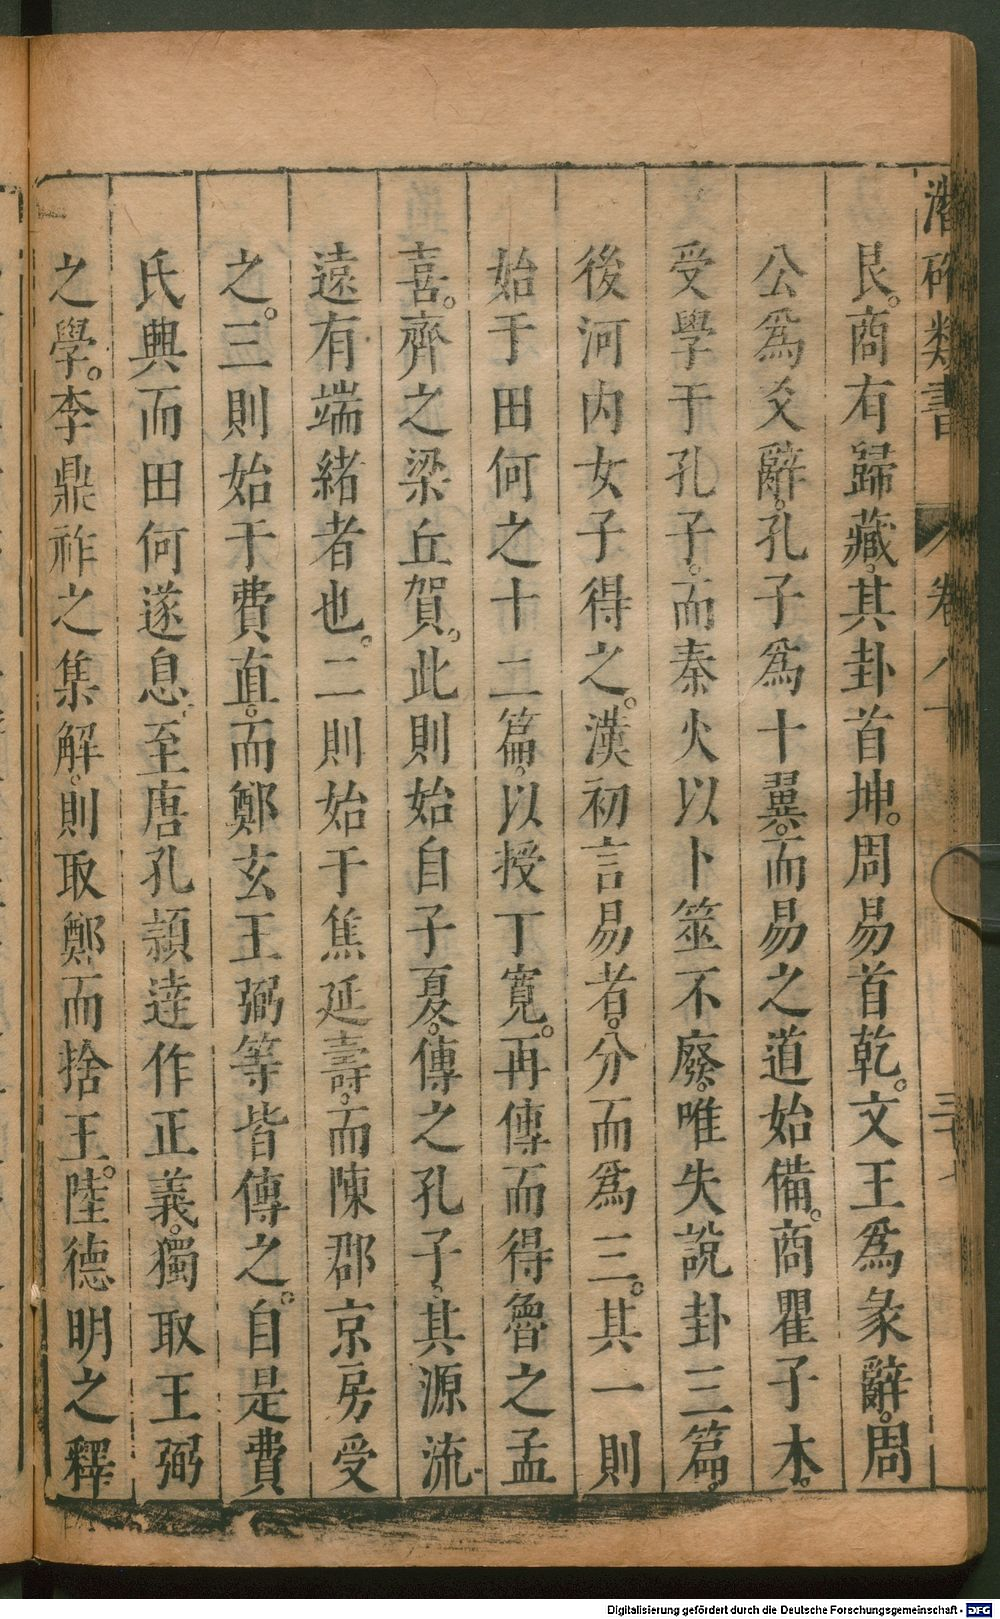 潛研類書 卷八十
艮。商有歸藏。其卦首坤。周易首乾。文王爲彖辭。周
公爲爻辭。孔子爲十翼。而易之道始備。商瞿子木。
受學于孔子。而秦火以卜筮不廢。唯失說卦三篇。
後河内女子得之。漢初言易者。分而爲三。其一則
始于田何之十二篇。以授丁寬。再傳而得魯之孟
喜。齊之梁丘賀。此則始自子夏。傳之孔子。其源流
遠有端緒者也。二則始于焦延壽。而陳郡京房受
之。三則始于費直。而鄭玄王弼等皆傳之。自是費
氏興而田何遂息。至唐孔頴達作正義。獨取王弼
之學。李鼎祚之集解。則取鄭而捨王。陸德明之釋
Digitalisierung gefördert durch die Deutsche Forschungsgemeinschaft - DFG